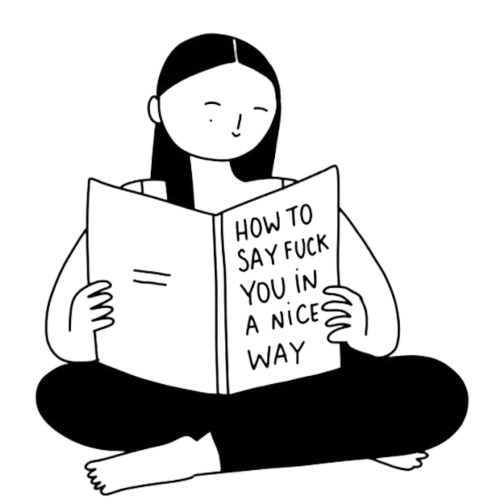 HOW TO
SAY FUCK
YOU iN
A NiCE
WAY